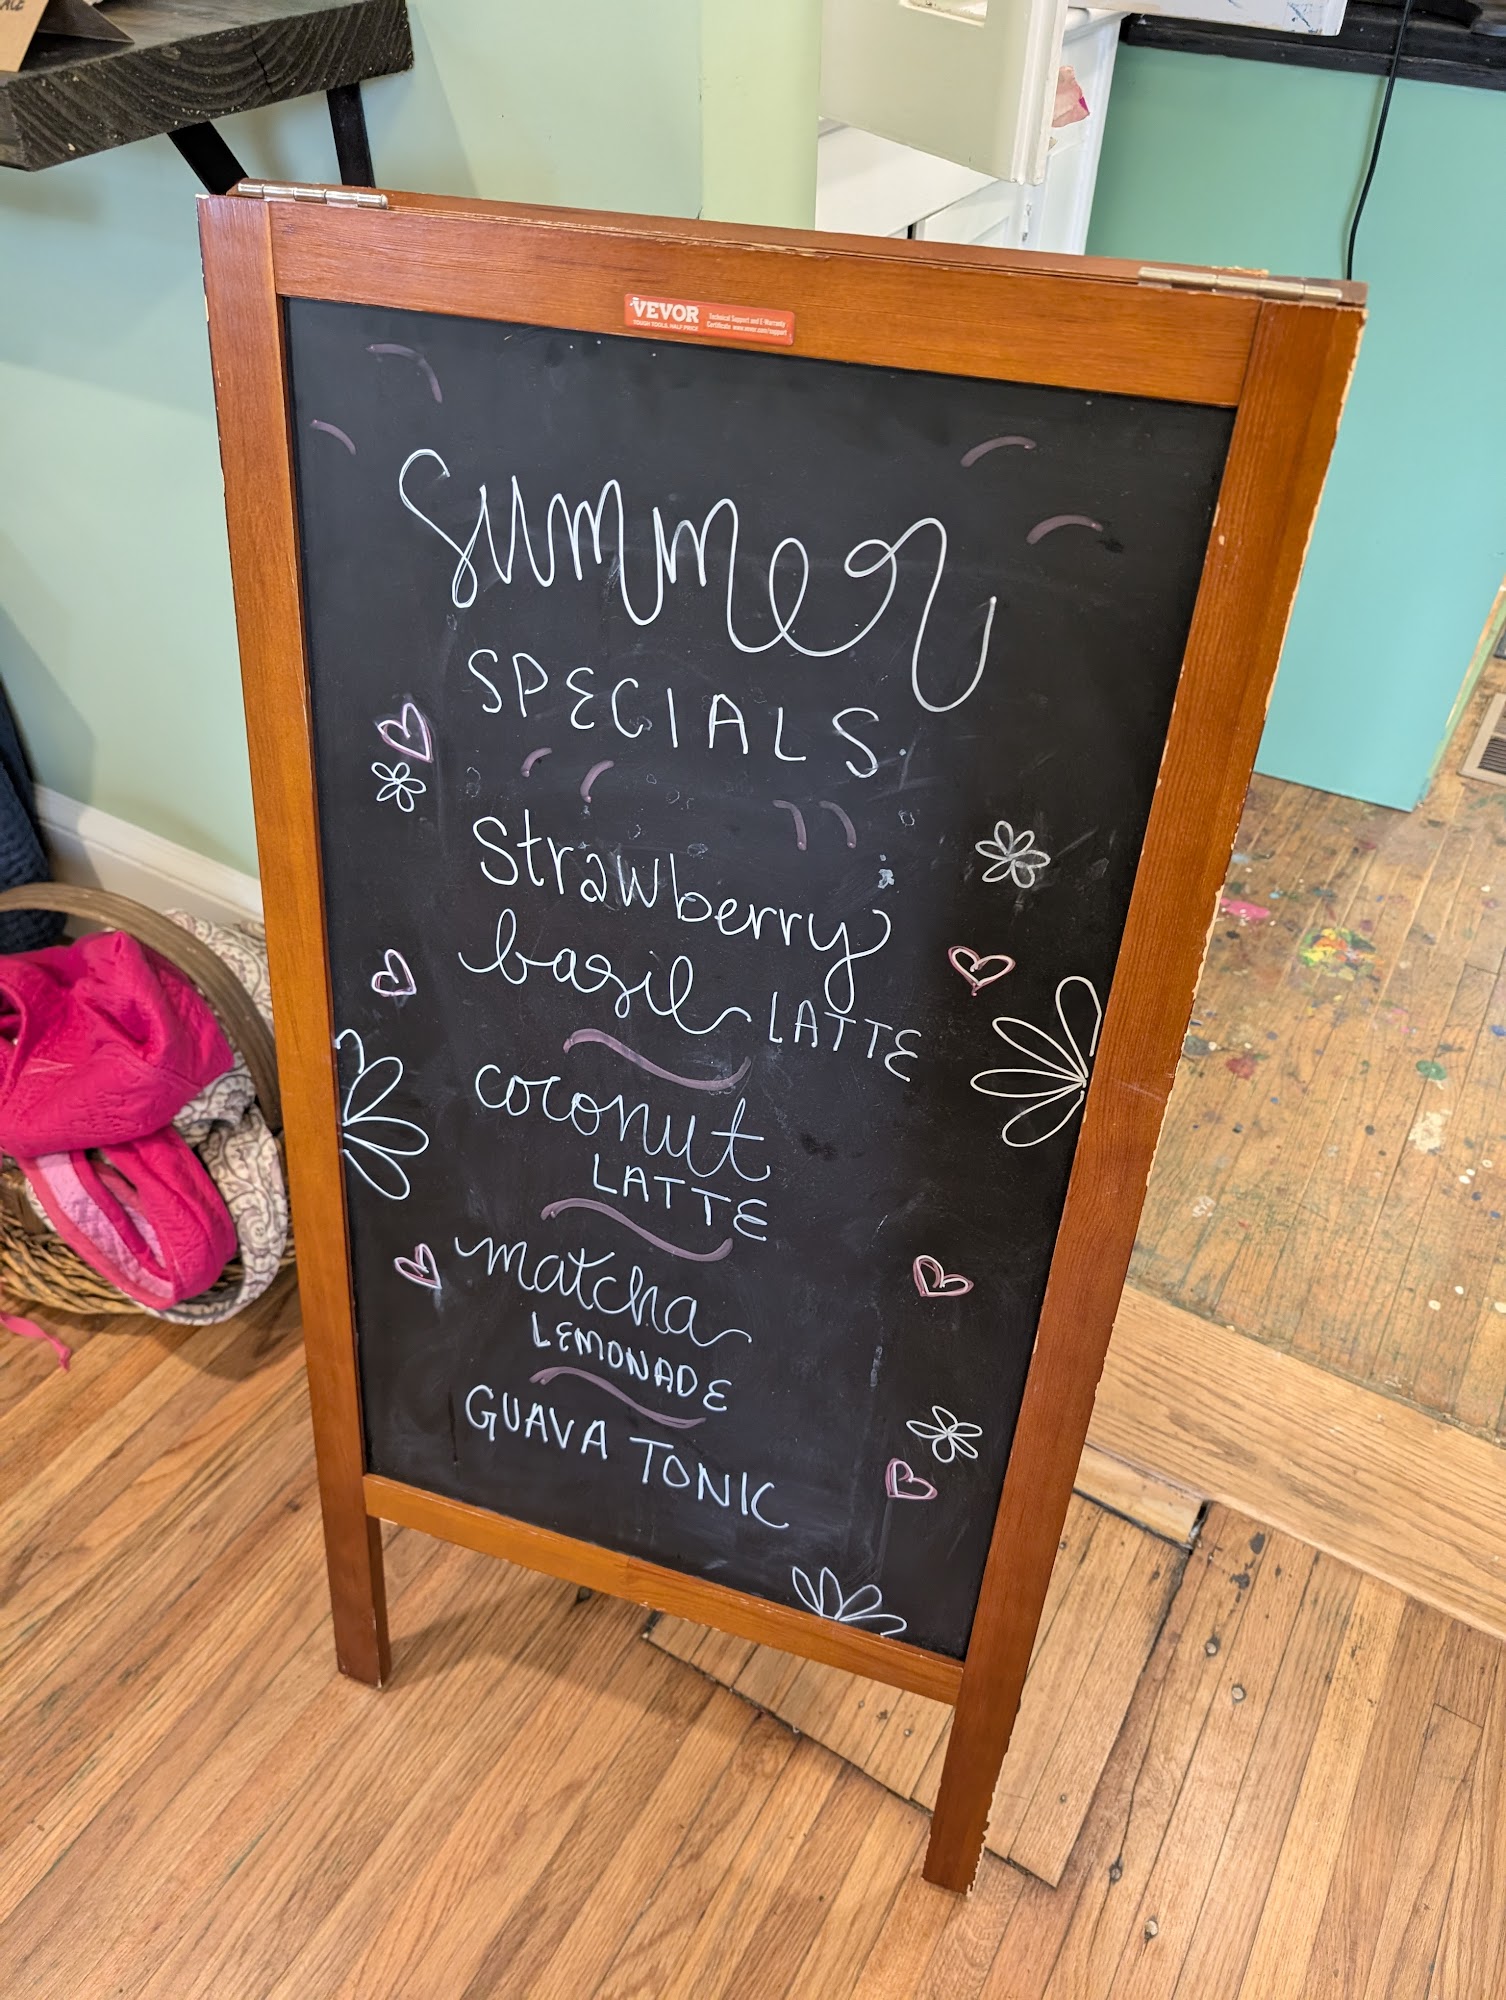 ACE
VEVOR
TOUGH TOOLS, HALF PRICE
Technical Support and E-Warranty
Certificate www.vevor.com/support
summer
SPECIALS
Strawberry
basil LATTE
coconut
LATTE
matcha
LEMONADE
GUAVA TONIC